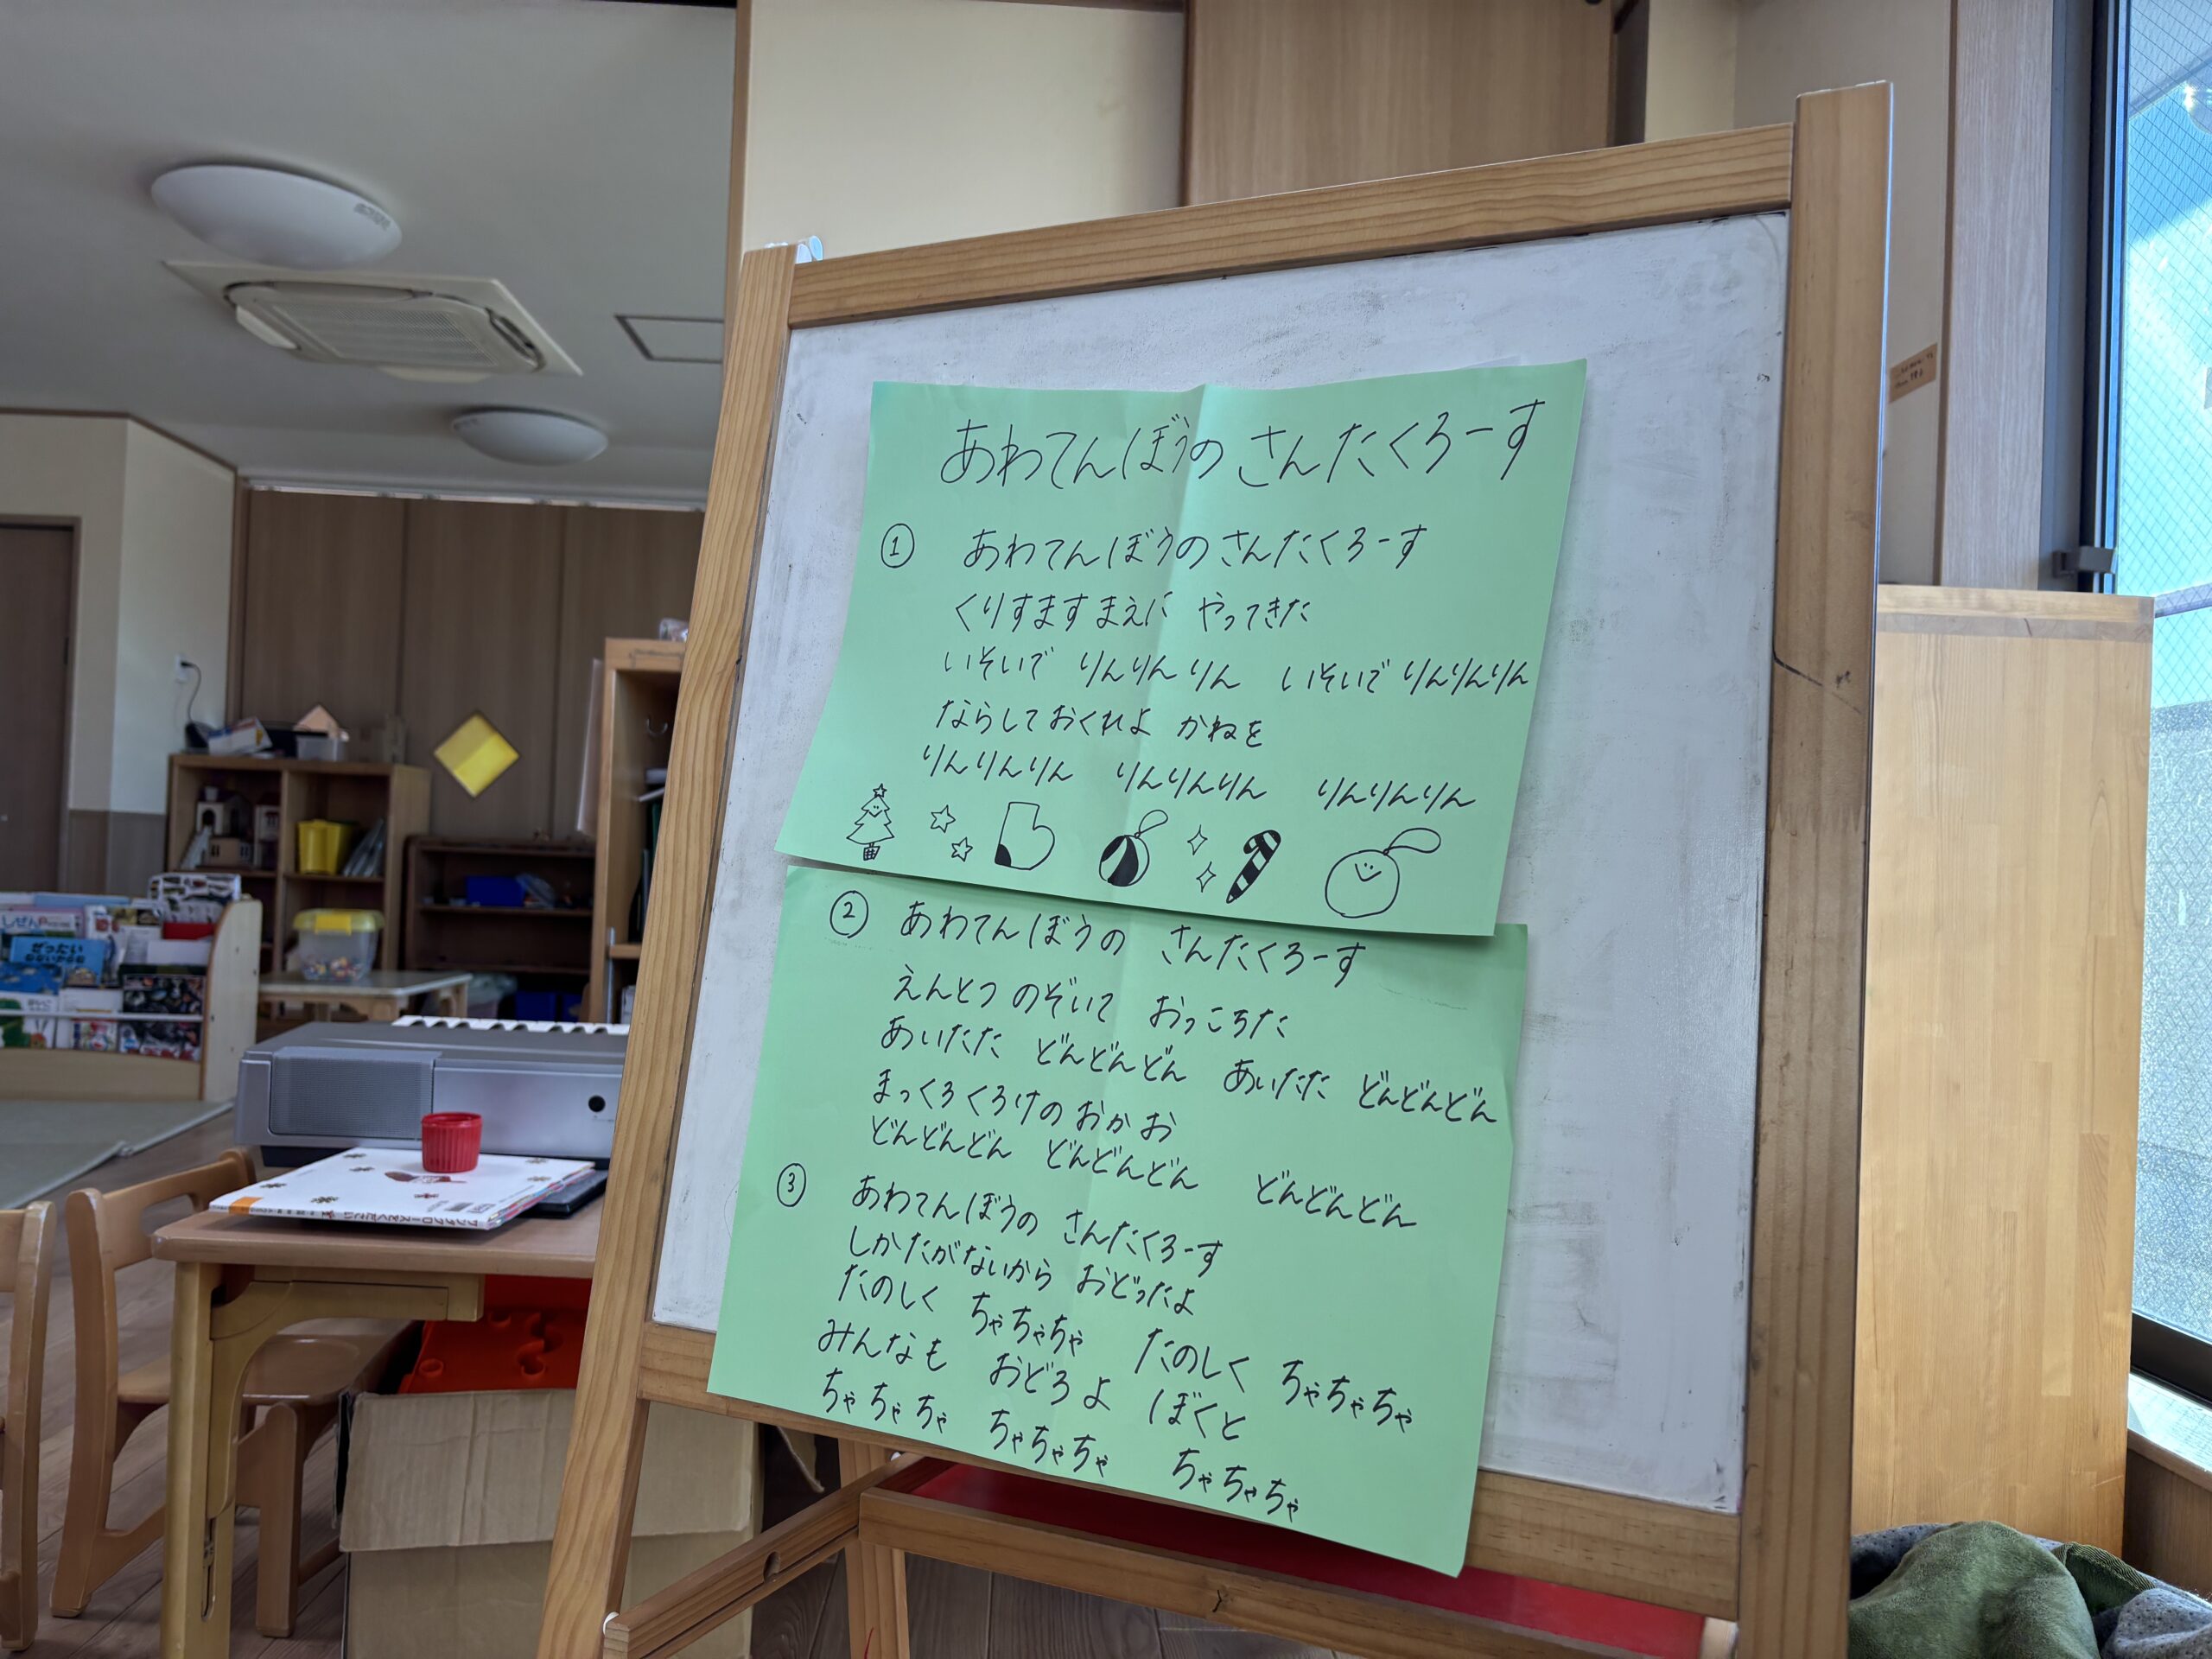 あわてんぼうの さんたくろーす
① あわてんぼうの さんたくろーす
くりすますまえに やってきた
いそいで りんりんりん いそいで りんりんりん
ならしておくれよ かねを
りんりんりん りんりんりん りんりんりん
② あわてんぼうの さんたくろーす
えんとつ のぞいて おっころた
あいたた どんどんどん あいたた どんどんどん
まっくろくろけの おかお
どんどんどん どんどんどん どんどんどん
③ あわてんぼうの さんたくろーす
しかたがないから おどったよ
たのしく ちゃちゃちゃ たのしく ちゃちゃちゃ
みんなも おどろよ ぼくと
ちゃちゃちゃ ちゃちゃちゃ ちゃちゃちゃ
しぜん
ぜったい